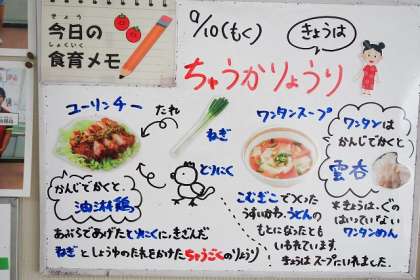 きょう
今日の
しょくいく
食育メモ
9/10(もく)
きょうは
ちゅうかりょうり
ユーリンチー
たれ
ねぎ
とりにく
かんじでかくと、
油淋鶏
あぶらであげたとりにくに、きざんだ
ねぎとしょうゆのたれをかけたちゅうごくのりょうり
ワンタンスープ
ワンタンは
かんじでかくと
雲呑
こむぎこでつくった
うすいかわ。うどんの
もとになったとも
いわれています。
きょうはスープにいれました。
※きょうは、ぐの
はいっていない
ワンタンめん